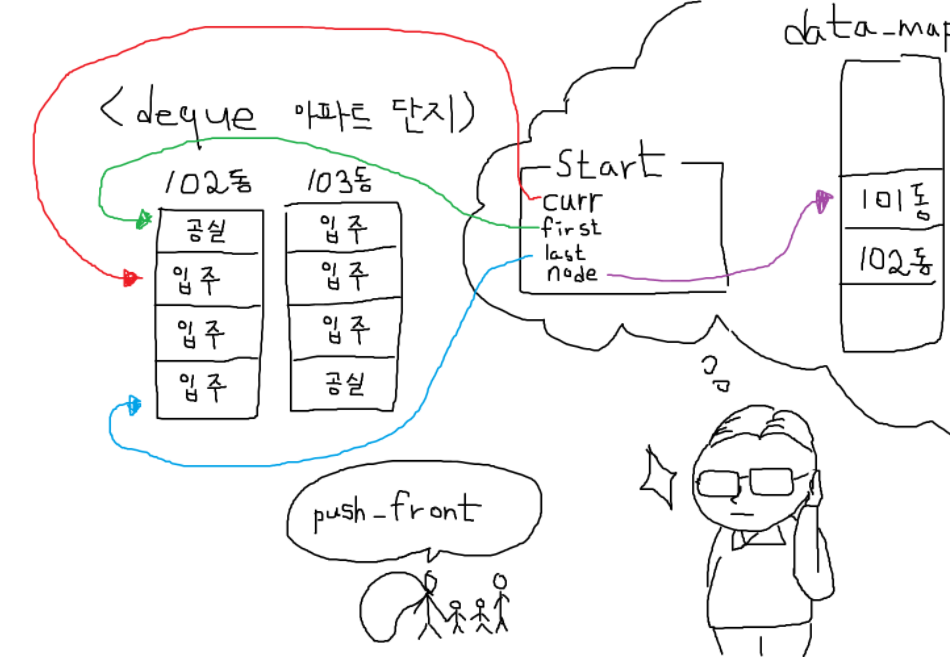 data_map
<deque 아파트 단지>
102동 103동
공실 입주
입주 입주
입주 입주
입주 공실
Start
curr
first
last
node
101동
102동
push_front